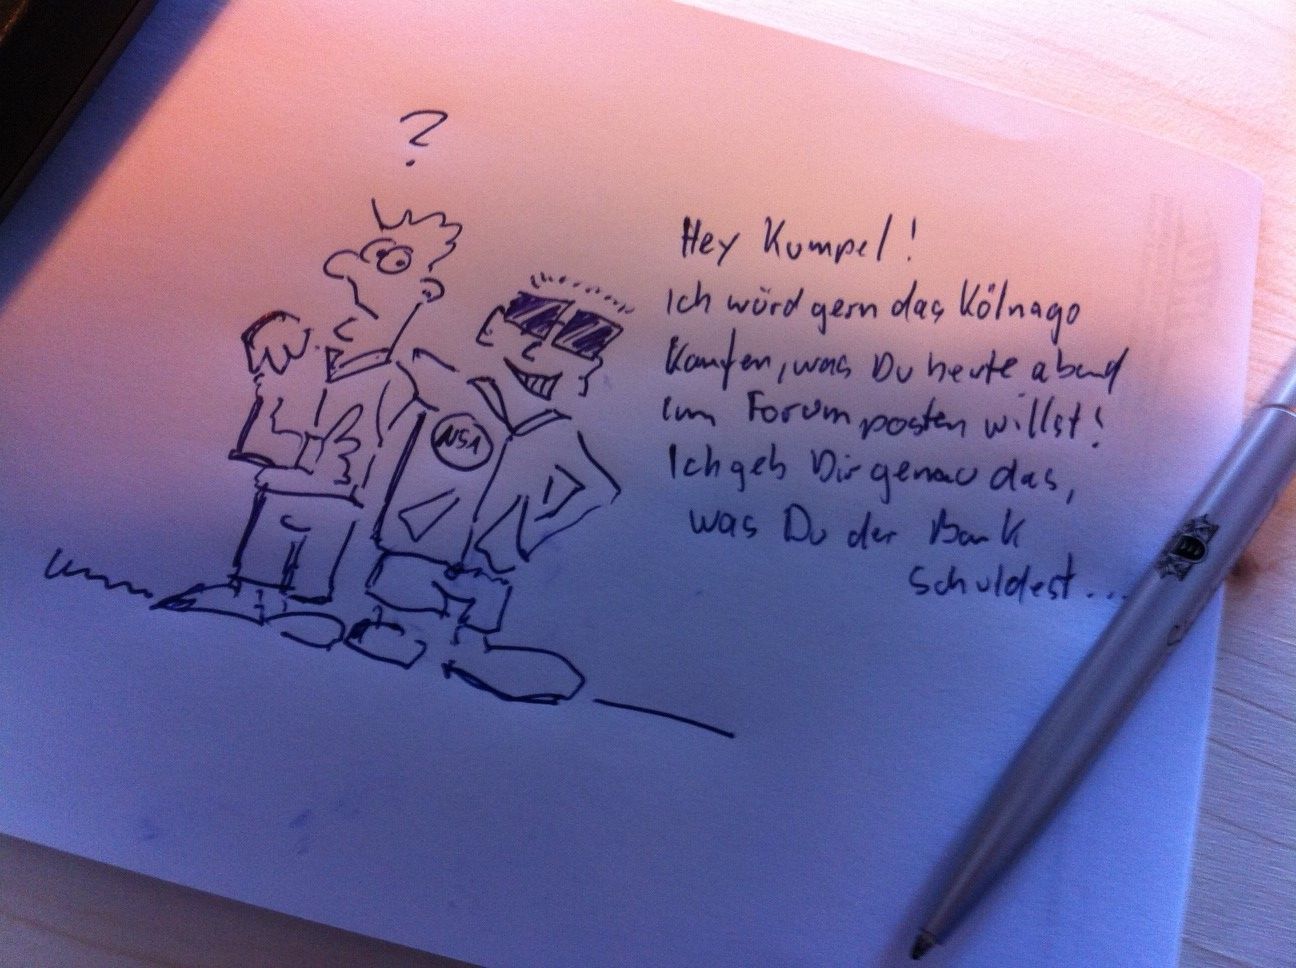 ?
Hey Kumpel!
Ich würd gern das Kölnago
Kaufen, was Du heute abend
im Forum posten willst!
Ich geb Dir genau das,
was Du der Bank
schuldest...
NSA